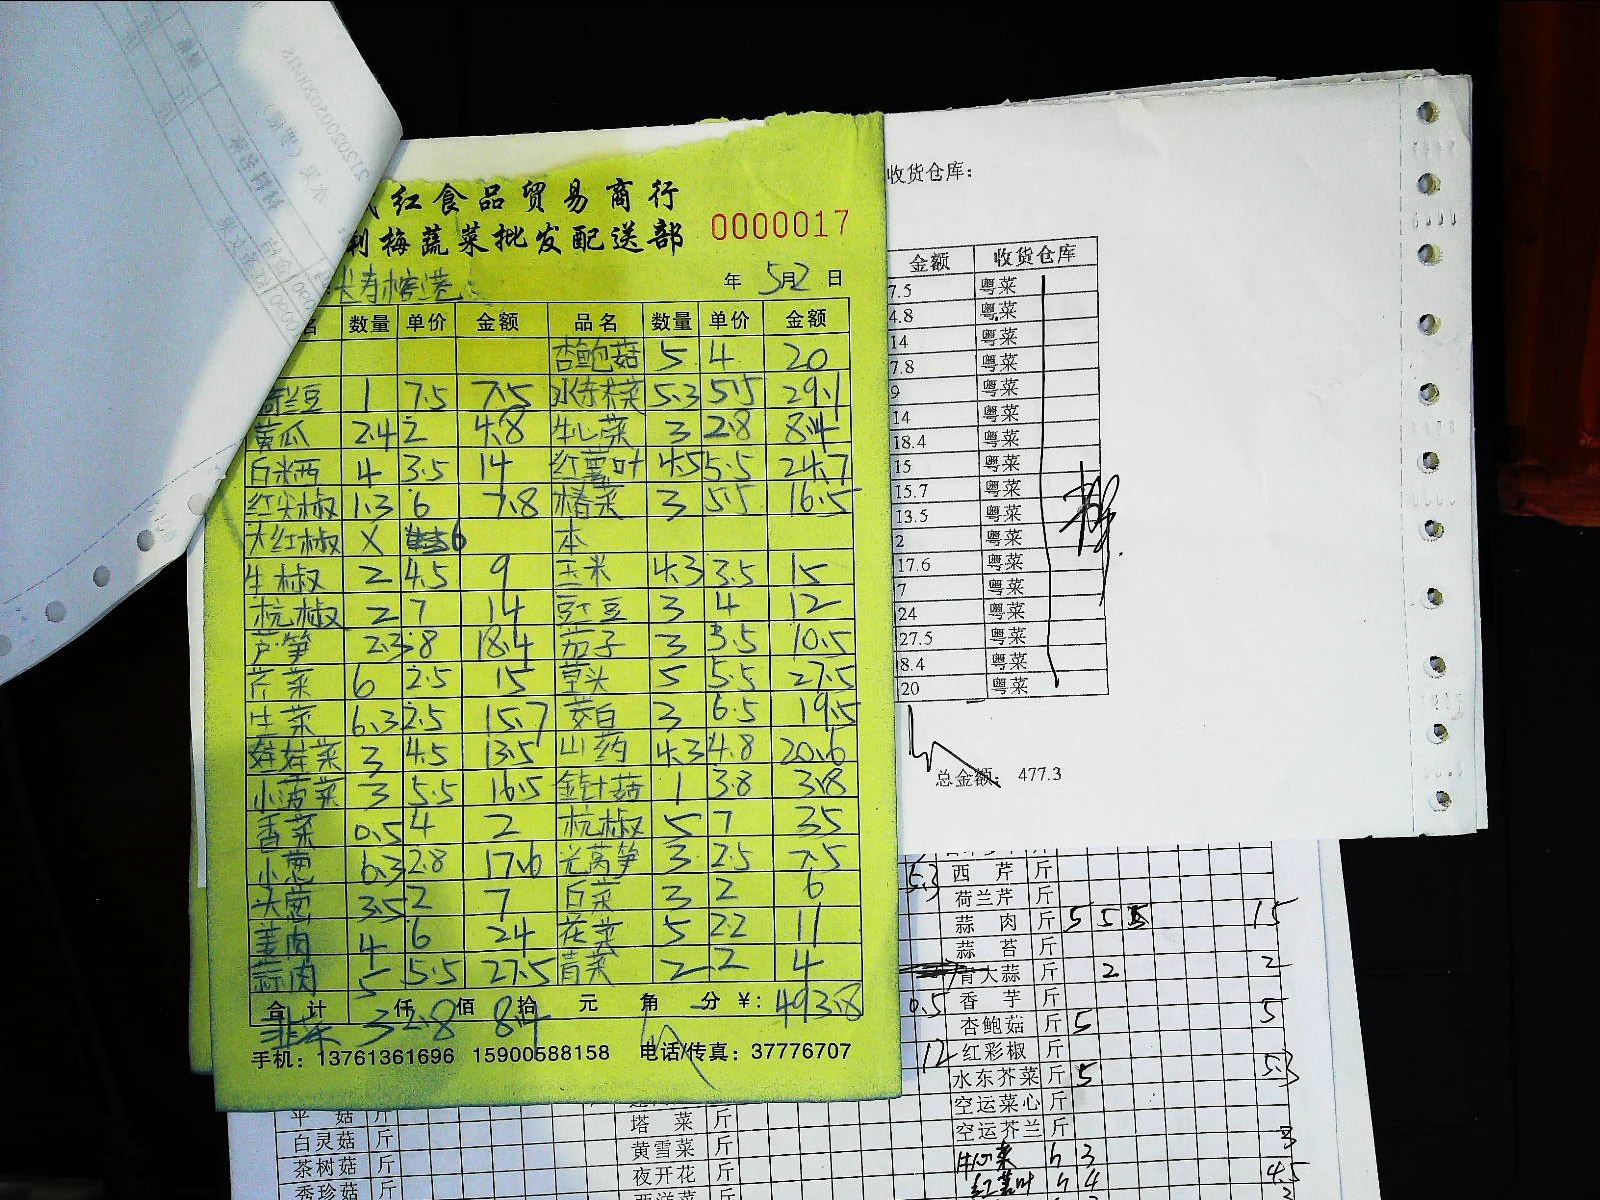 红食品贸易商行
利梅蔬菜批发配送部 0000017
年 5月2日
数量 单价 金额 品名 数量 单价 金额
杏鲍菇 5 4 20
荷兰豆 1 7.5 7.5 水东芥菜 5.3 5.5 29.1
黄瓜 2.4 2 4.8 牛心菜 3 2.8 8.4
白米西 4 3.5 14 红薯叶 4.5 5.5 24.7
红尖椒 1.3 6 7.8 3 5.5 16.5
大红椒 X 6 本
牛椒 2 4.5 9 玉米 4.3 3.5 15
杭椒 2 7 14 豇豆 3 4 12
芦笋 2.3 8 18.4 茄子 3 3.5 10.5
芹菜 6 2.5 15 草头 5 5.5 27.5
生菜 6.3 2.5 15.7 茭白 3 6.5 19.5
娃娃菜 3 4.5 13.5 山药 4.3 4.8 20.6
小菠菜 3 5.5 16.5 金针菇 1 3.8 3.8
香菜 0.5 4 2 杭椒 5 7 35
小葱 6.3 2.8 17.6 光莴笋 3 2.5 7.5
大葱 3.5 2 7 白菜 3 2 6
姜肉 4 6 24 花菜 5 2.2 11
蒜肉 5 5.5 27.5 青菜 2 2 4
合计 仟 佰 拾 元 角 分 ¥: 493.8
韭菜 3 2.8 8.4
手机: 13761361696 15900588158 电话/传真: 37776707
收货仓库:
金额 收货仓库
7.5 粤菜
4.8 粤菜
14 粤菜
7.8 粤菜
9 粤菜
14 粤菜
18.4 粤菜
15 粤菜
15.7 粤菜
13.5 粤菜
2 粤菜
17.6 粤菜
7 粤菜
24 粤菜
27.5 粤菜
8.4 粤菜
20 粤菜
总金额: 477.3
5.3 西芹 斤
荷兰芹 斤
蒜肉 斤 5 5 5 15
蒜苔 斤
青大蒜 斤 2 2
0.5 香芋 斤
杏鲍菇 斤 5 5
12 红彩椒 斤
水东芥菜 斤 5 5.3
空运菜心 斤
空运芥兰 斤
牛心菜 3 3
红薯叶 4 4.5
平菇 斤
白灵菇 斤
茶树菇 斤
秀珍菇 斤
塔菜 斤
黄雪菜 斤
夜开花 斤
西洋菜 斤